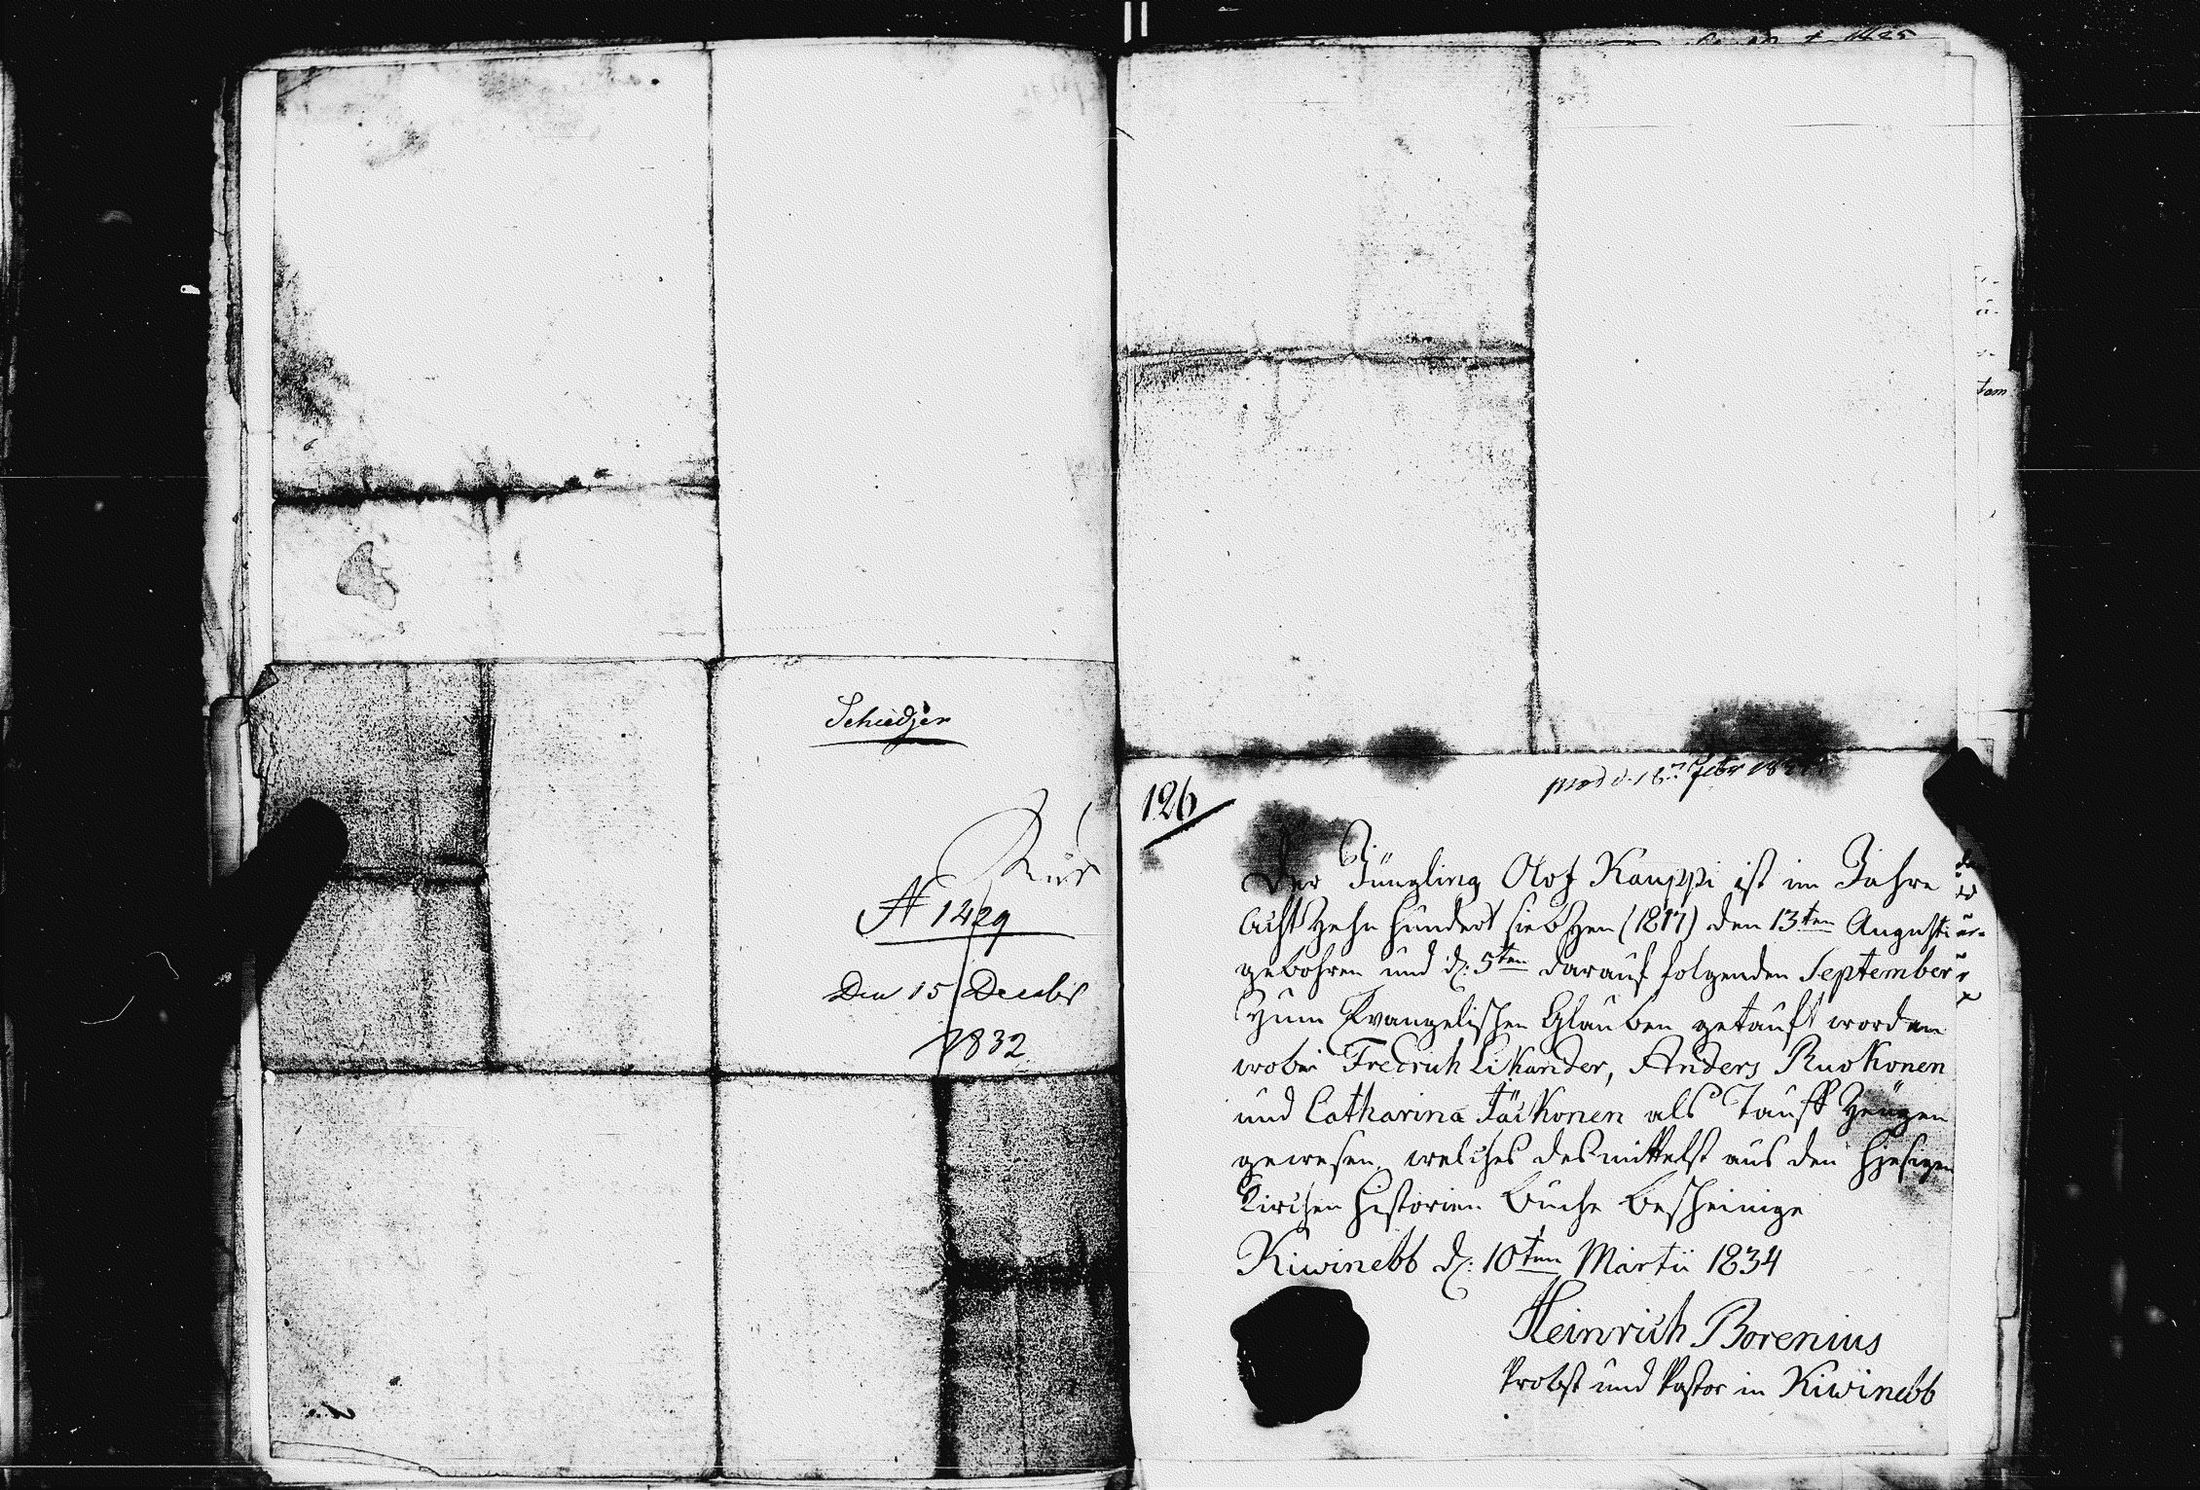 № 1429
Den 15 Decebr
1832
126
Der Jüngling Olof Kauppi ist im Jahre
Acht Zehn hundert sieb Zen (1817) den 13ten Augusti
gebohren und d: 5ten darauf folgenden September
Zum Evangelischen Glauben getauft worden
wobei Fredrich Likander, Anders Ruokonen
und Catharina als Tauff Zeugen
gewesen, welches desmittelst aus den hiesigen
Kirchen Historien Buche bescheinige
Kiwinebb d: 10ten Martii 1834
Heinrich Borenius
Probst und Pastor in Kiwinebb